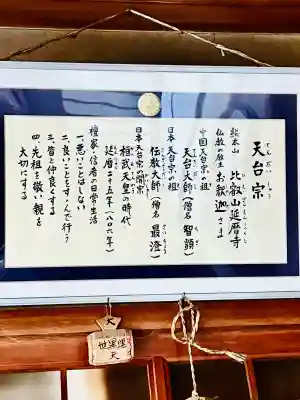 天台宗
てんだいしゅう
総本山 比叡山延暦寺
仏教の教主 お釈迦さま
中国天台宗の祖
天台大師(僧名 智顗)
日本天台宗の祖
伝教大師(僧名 最澄)
日本天台宗の開宗
桓武天皇の時代
延暦二十五年(八〇六年)
檀家・信者の日常生活
一、悪いことはしない
二、良いことをすすんで行う
三、皆と仲良くする
四、先祖を敬い親を
大切にする